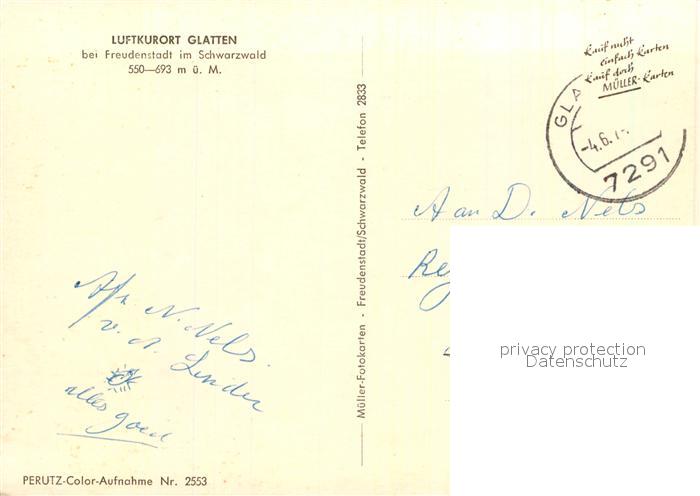 LUFTKURORT GLATTEN
bei Freudenstadt im Schwarzwald
550—693 m ü. M.
Afz. N. Nels.
v. d. Linden
alles goed
PERUTZ-Color-Aufnahme Nr. 2553
Müller-Fotokarten - Freudenstadt/Schwarzwald - Telefon 2833
Kauf nicht
einfach Karten
Kauf doch
MÜLLER-Karten
GLA
-4.6.7
7291
Aan D. Nels
privacy protection
Datenschutz